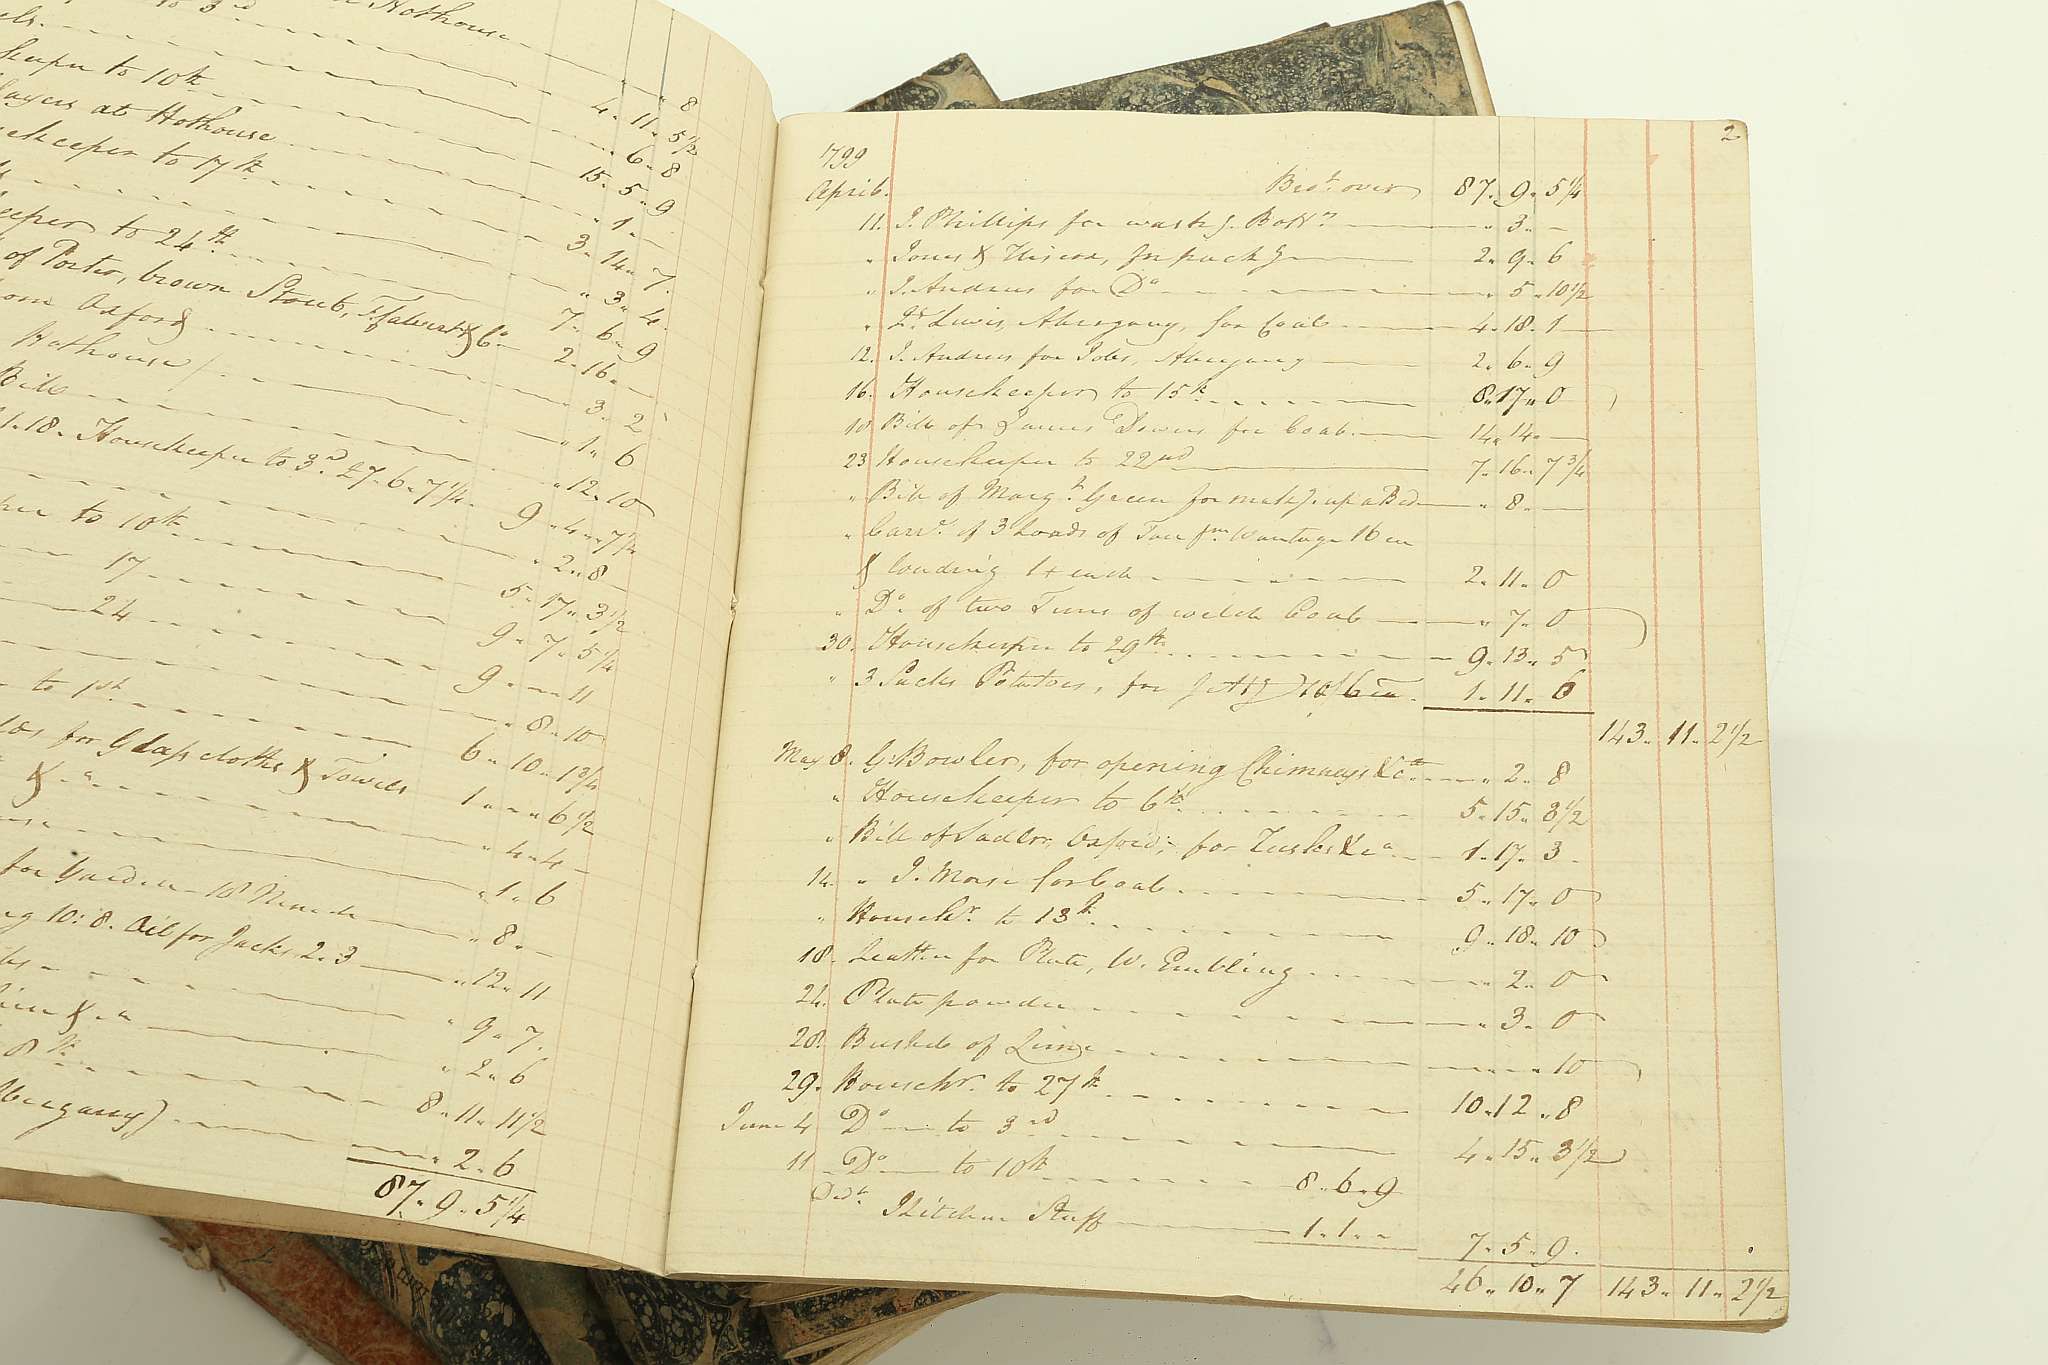 Hothouse
to 3rd
" " 8
4 " 11 " 5 1/2
to 10th
" 6 " 8
at Hothouse
15 " 5 " 9
to 17th
" 1 " —
3 " 14 " 7
to 24th
" 3 " 4
of Porter, brown Stout, F. Calvert & Co
7 " 6 " 9
Oxford
2 " 16 " —
Hothouse
" 3 " 2
Bill
" 1 " 6
1 " 18 " Housekeeper to 3rd £7 " 6 " 7 1/4
" 12 " 10
9 " 4 " 7 1/4
to 10th
" 2 " 8
17
5 " 17 " 3 1/2
24
9 " 7 " 5 1/4
9 " — " 11
to 1st
" 8 " 10
for Glass cloths & Towels
6 " 10 " 1 3/4
&c
1 " " 6 1/2
" 4 " 4
" 1 " 6
for Garden
" 8 " —
10 : 8. Oil for Jacks 2 " 3
" 12 " 11
" 9 " 7
&c
" 2 " 6
8th
8 " 11 " 11 1/2
" 2 " 6
87 " 9 " 5 1/4
2
1799
April. Brot. over 87 " 9 " 5 1/4
11. J. Phillips for " 3 " —
" Jones & 2 " 9 " 6
" J. Andrews for Do " 5 " 10 1/2
" Lewis, Abergany, for Coal 4 " 18 " 1
12. J. Andrews for Do, Abergany 2 " 6 " 9
16. Housekeeper to 15th 8 " 17 " 0
Bill of James Downs for Coal 14 " 14 " —
23 Housekeeper to 22nd 7 " 16 " 7 3/4
" Bill of Margt. Green for makg. up a Bed " 8 " —
" Carre. of 3 Loads of fm. Wantage 16
& loading 1 each 2 " 11 " 0
" Do. of two Tuns of welch Coal " 7 " 0
30. Housekeeper to 29th 9 " 13 " 5
" 3 Sacks Potatoes, for 10/6 1 " 11 " 6
143 " 11 " 2 1/2
May 8. G. Bowler, for opening Chimneys &c " 2 " 8
" Housekeeper to 6th 5 " 15 " 3 1/2
" Bill of Sadler, Oxford; for &ca 1 " 17 " 3
14. " J. Morse for Coal 5 " 17 " 0
" Housekr. to 13th 9 " 18 " 10
18. Leather for Plate, W. Embling " 2 " 0
24. Plate powder " 3 " 0
28. Bushel of Lime " " 10
29. Housekr. to 27th 10 " 12 " 8
June 4 Do to 3rd 4 " 15 " 3 1/2
11 Do to 10th 8 " 6 " 9
Dedt. Kitchen Stuff 1 " 1 " "
7 " 5 " 9
46 " 10 " 7 143 " 11 " 2 1/2